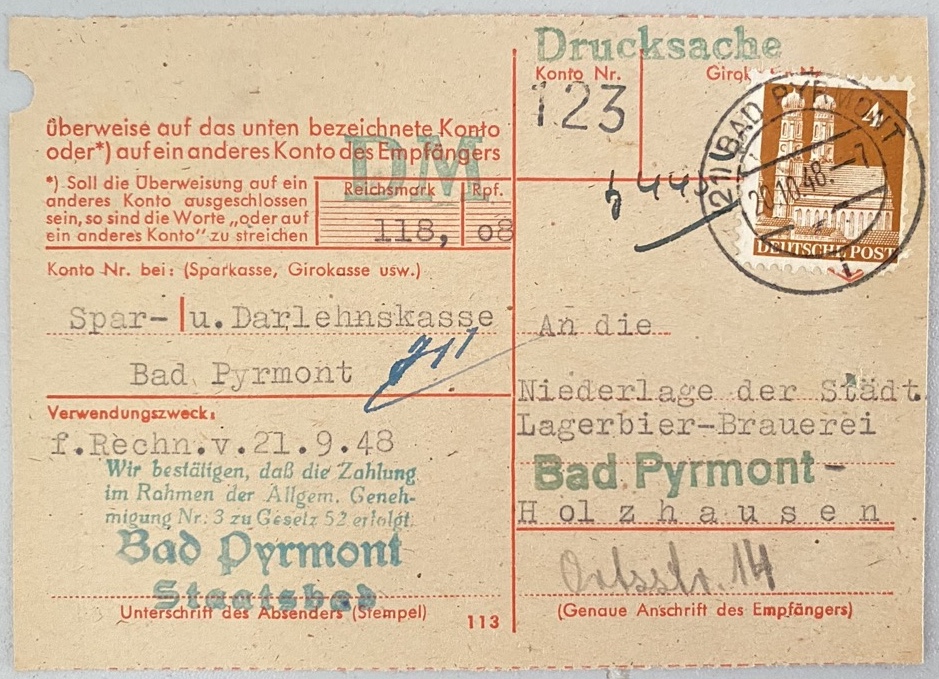 Drucksache
Konto Nr.
123
überweise auf das unten bezeichnete Konto
oder*) auf ein anderes Konto des Empfängers
DM
*) Soll die Überweisung auf ein
anderes Konto ausgeschlossen
sein, so sind die Worte „oder auf
ein anderes Konto" zu streichen
Reichsmark Rpf.
118, 08
Konto Nr. bei: (Sparkasse, Girokasse usw.)
Spar- u. Darlehnskasse
Bad Pyrmont
Verwendungszweck:
f.Rechn.v.21.9.48
Wir bestätigen, daß die Zahlung
im Rahmen der Allgem. Geneh-
migung Nr. 3 zu Gesetz 52 erfolgt.
Bad Pyrmont
Staatsbad
Unterschrift des Absenders (Stempel)
113
(21) BAD PYRMONT
20.10.48.-7
4
DEUTSCHE POST
An die
Niederlage der Städt.
Lagerbier-Brauerei
Bad Pyrmont-
Holzhausen
Ortsstr. 14
(Genaue Anschrift des Empfängers)